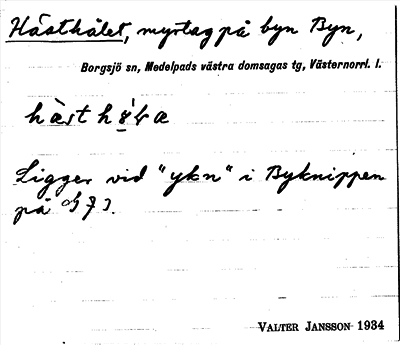 Hästhålet, myrtag på byn Byn,
Borgsjö sn, Medelpads västra domsagas tg, Västernorrl. l.
Ligger vid "ykn" i Byknippen
på
VALTER JANSSON 1934